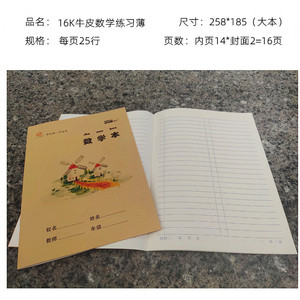 品名： 16K牛皮数学练习薄
尺寸：258*185（大本）
规格： 每页25行
页数：内页14*封面2=16页
数学本
校名
姓名
教师
年级